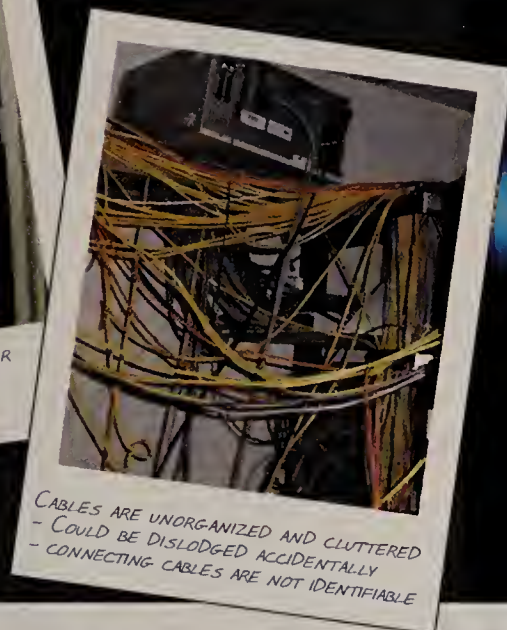 R
CABLES ARE UNORGANIZED AND CLUTTERED
- COULD BE DISLODGED ACCIDENTALLY
- CONNECTING CABLES ARE NOT IDENTIFIABLE